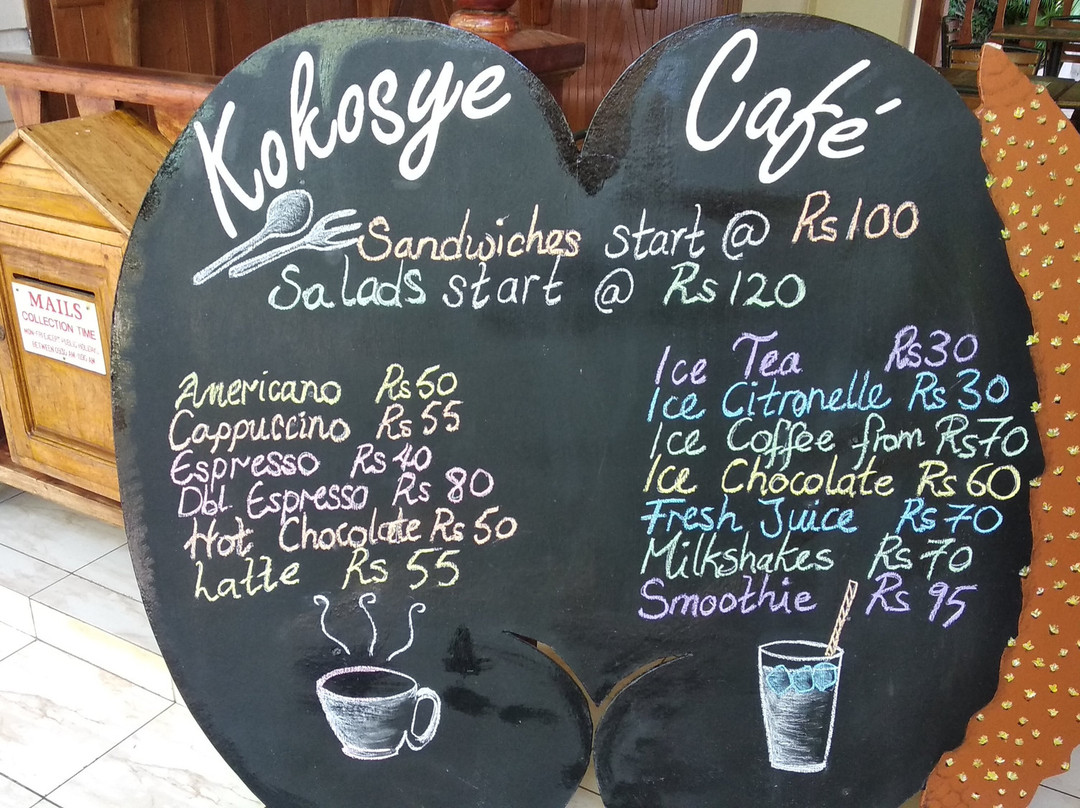 Kokosye Café
Sandwiches start @ Rs100
Salads start @ Rs120
Americano Rs50
Cappuccino Rs55
Espresso Rs40
Dbl Espresso Rs 80
Hot Chocolate Rs50
Latte Rs 55
Ice Tea Rs30
Ice Citronelle Rs 30
Ice Coffee from Rs70
Ice Chocolate Rs60
Fresh Juice Rs70
Milkshakes Rs70
Smoothie Rs 95
MAILS
COLLECTION TIME